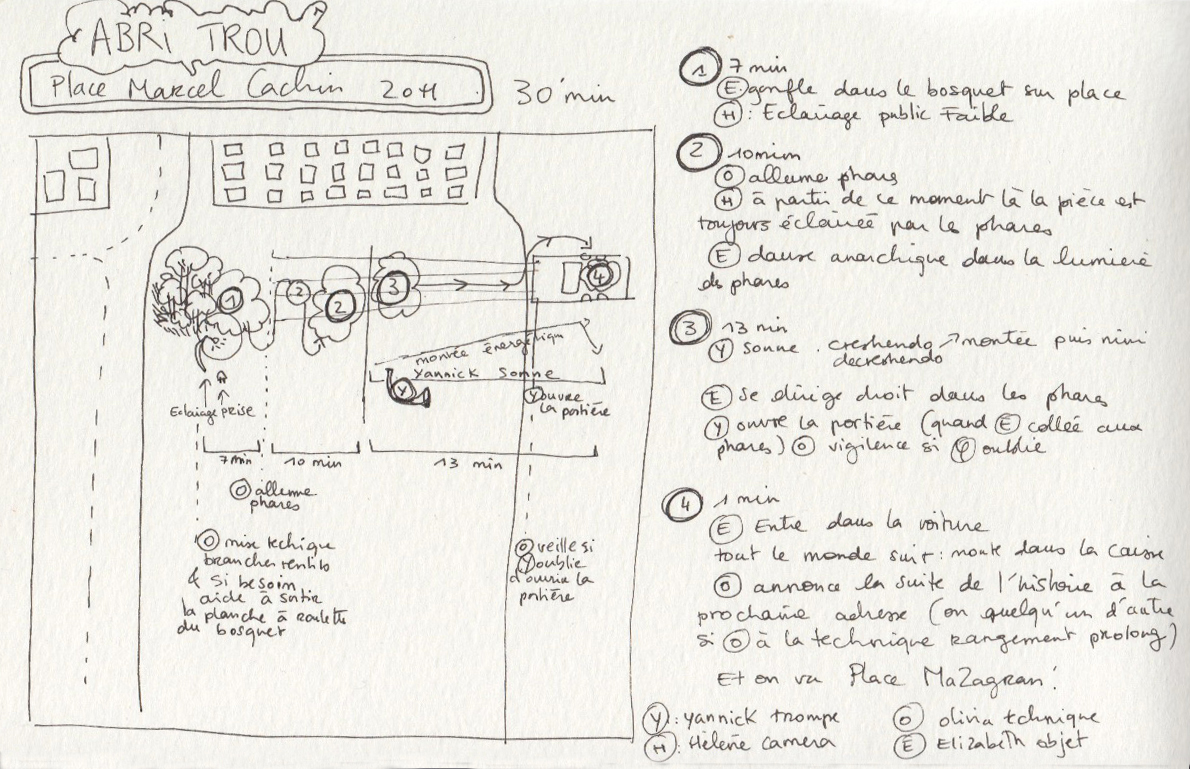 ABRi TROU
Place Marcel Cachin 20H
30' min
1 2 2 3 4
montée énergétique
Yannick Sonne
Y
Y ouvre
la portière
Eclairage prise
7 min 10 min 13 min
O allume
phares
O mise techique
brancher ventilo
& si besoin
aide à sortir
la planche à roulette
du bosquet
O veille si
Y oublie
d'ouvrir la
portière
1 7 min
E gonfle dans le bosquet sur place
H : Eclairage public Faible
2 10 min
O allume phares
H à partir de ce moment là la pièce est
toujours éclairée par le phares
E danse anarchique dans la lumière
des phares
3 13 min
Y sonne . creshendo montée puis mini
decreshendo
E se dirige droit dans les phares
Y ouvre la portière (quand E collée aux
phares) O vigilence si Y oublie
4 1 min
E Entre dans la voiture
tout le monde suit : monte dans la caisse
O annonce la suite de l'histoire à la
prochaine adresse (ou quelqu'un d'autre
si O à la technique rangement prolong)
Et on va Place MaZagran !
Y : Yannick trompe O olivia technique
H : Hélène camera E Elizabeth objet